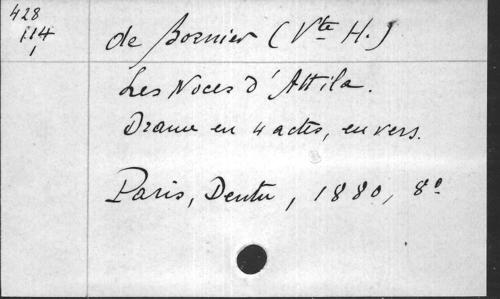 428
114
1
de Bornier (Vte H.)
Les Noces d'Attila.
Drame en 4 actes, en vers.
Paris, Dentu, 1880, 8º